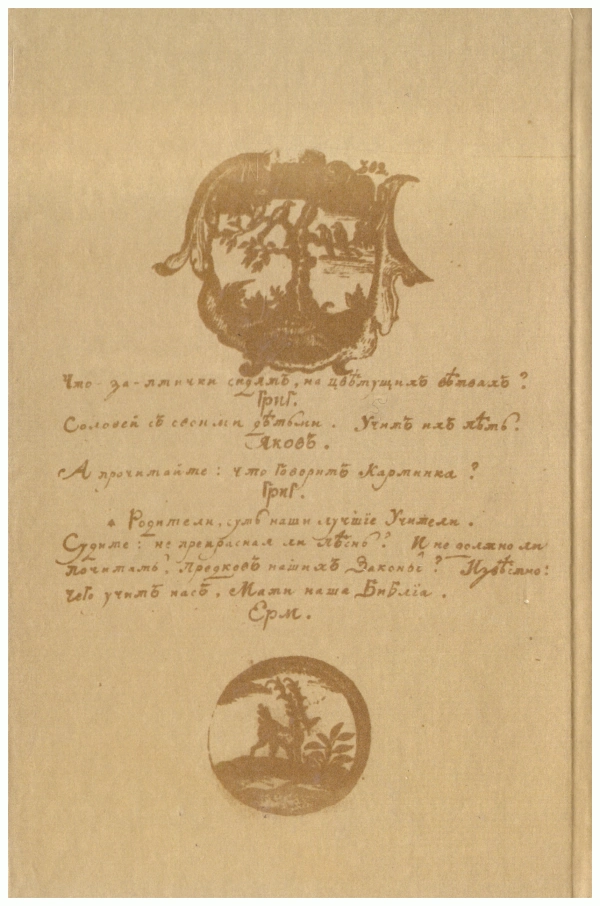 302
Что-за-птички сидятъ, на цвѣтущихъ вѣтвахъ?
Григ.
Соловей съ своими дѣтьми. Учитъ ихъ пѣть.
Яковъ.
А прочитайте: что говоритъ Картинка?
Григ.
* Родители, суть наши лучшіе Учители.
Судите: не прекрасная ли пѣснь? И не должно ли
почитать Предковъ нашихъ Законы? Извѣстно:
чего учитъ насъ, Мати наша Библіа.
Ерм.